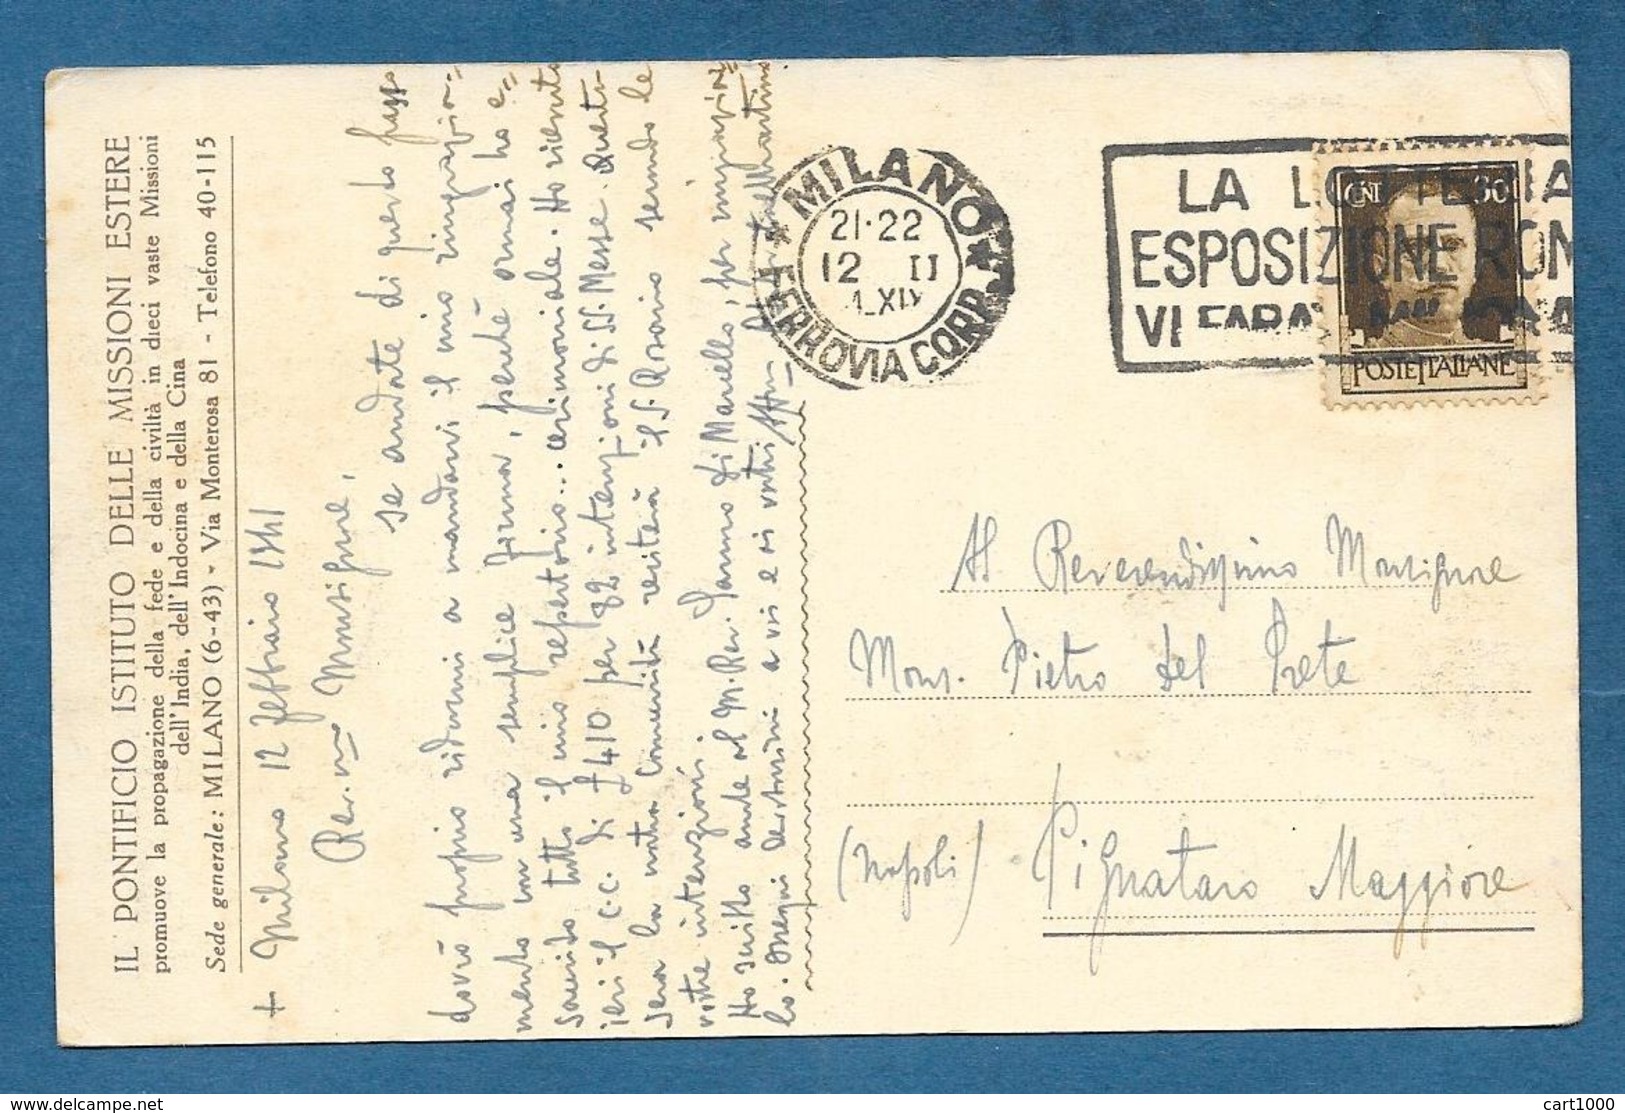 IL PONTIFICIO ISTITUTO DELLE MISSIONI ESTERE
promuove la propagazione della fede e della civiltà in dieci vaste Missioni
dell'India, dell'Indocina e della Cina
Sede generale: MILANO (6-43) - Via Monterosa 81 - Telefono 40-115
+ Milano 12 febbraio 1941
Rev.mo Monsignore,
se andate di questo passo
dovrò proprio ridurmi a mandarvi il mio ringrazia-
mento con una semplice firma, perché ormai ho e=
saurito tutto il mio repertorio... cerimoniale. Ho ricevuto
ieri il c.c. di £ 410 per 82 intenzioni di SS. Messe. Questa
sera la nostra comunità reciterà il S. Rosario secondo le
vostre intenzioni.
Ho scritto anche al M. Rev. Janno di Marcello, per
lo. Ossequi a voi e ai vostri
MILANO
FERROVIA CORR.
21·22
12 II
XIX
LA LOTTERIA
ESPOSIZIONE ROM
VI FARA'
CENT 30
POSTE ITALIANE
Al Reverendissimo Monsignore
Mons. Pietro del Prete
(Napoli) Pignataro Maggiore
cart1000